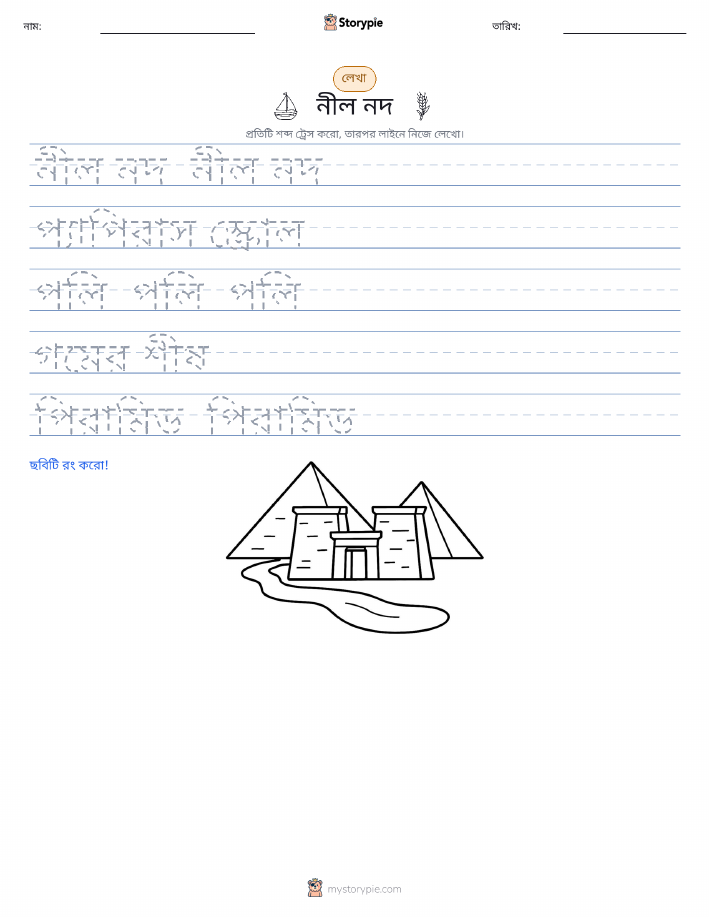 নাম: Storypie তারিখ:
লেখা
নীল নদ
প্রতিটি শব্দ ট্রেস করো, তারপর লাইনে নিজে লেখো।
নীল নদ নীল নদ
প্যাপিরাস স্ক্রোল
পলি পলি পলি
গমের শীষ
পিরামিড পিরামিড
ছবিটি রং করো!
mystorypie.com